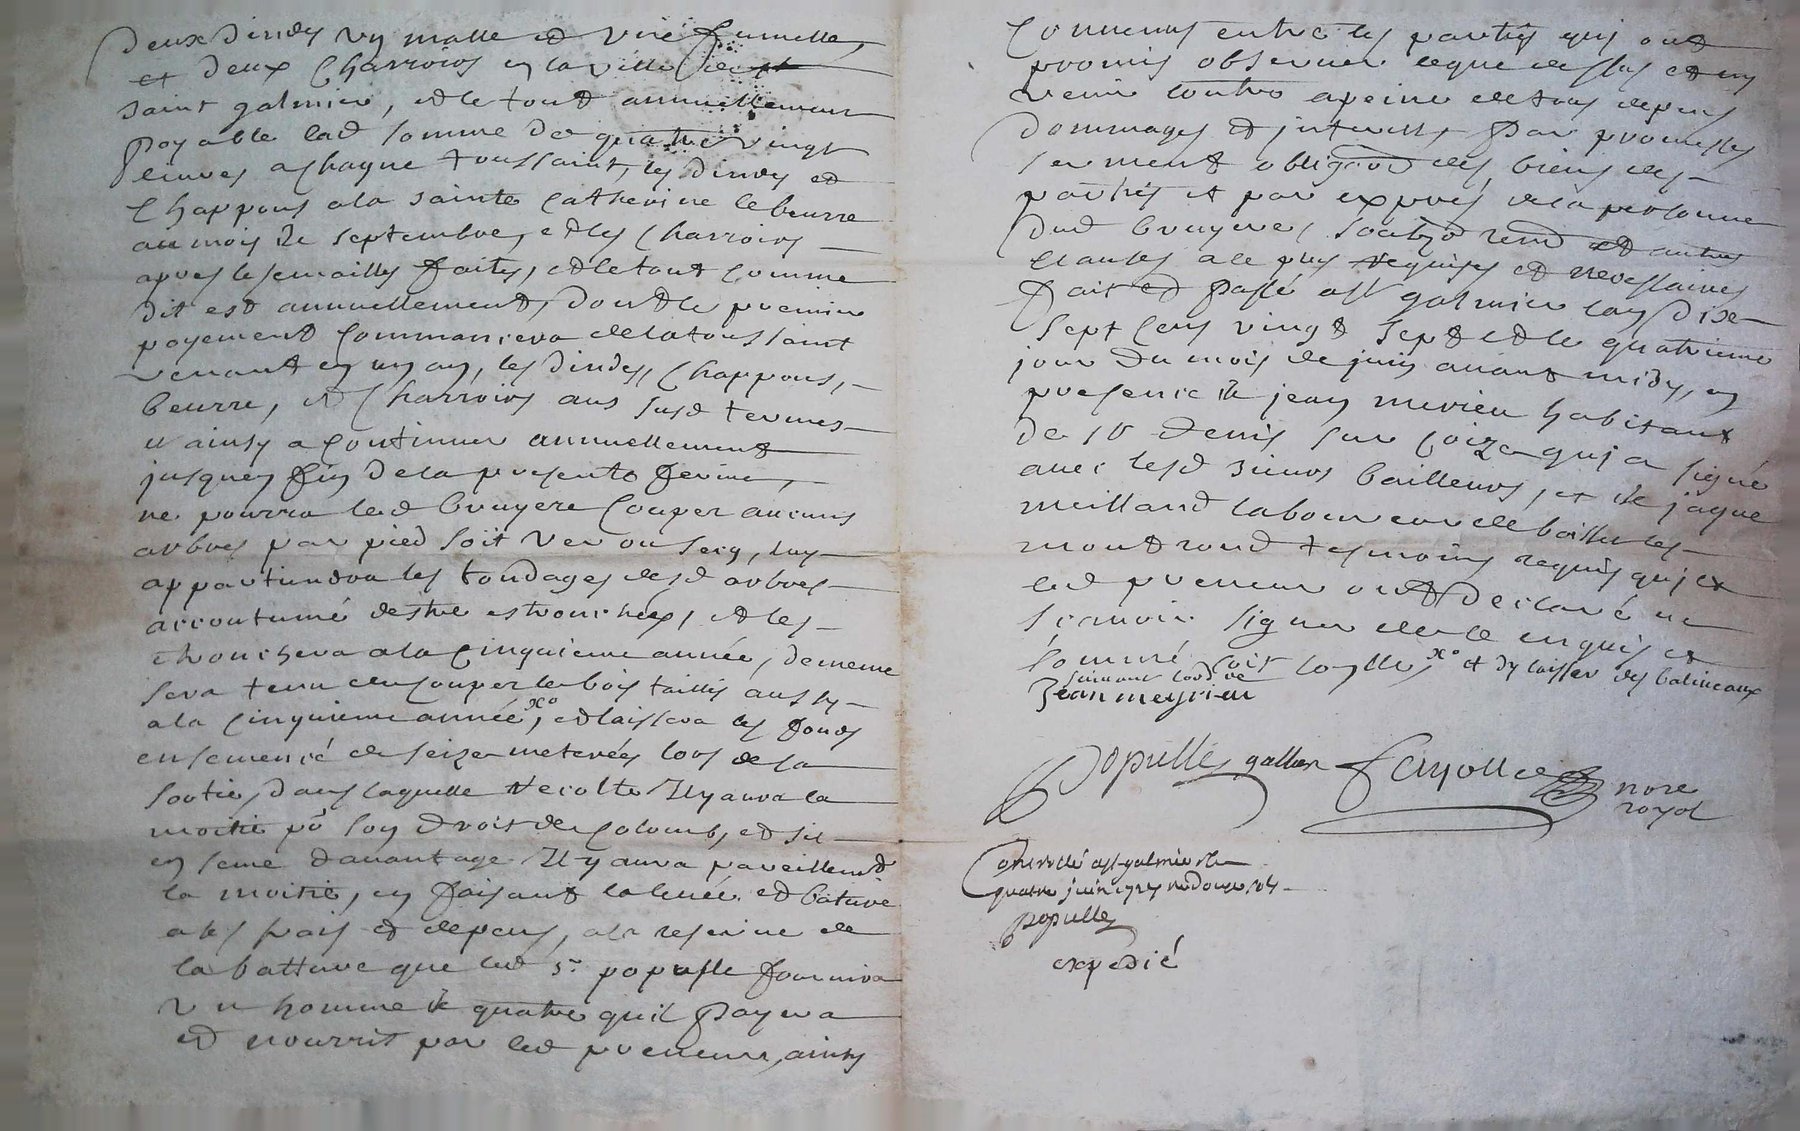 deux dindes un masle et une fumelle,
et deux charrois en la ville de
saint galmier, et le tout annuellement
payable lad somme de quatre vingt
livres a chaque toussaint, les dindes et
chappons a la sainte catherine le beurre
au mois de septembre, et les charrois
apres les semailles faites, et le tout comme
dit est annuellement, dont le premier
payement commancera de la toussaint
venant en un an, les dindes, chappons,
beurre, et charrois aus susd termes
et ainsy a continuer annuellement
jusques fin de la presente ferme,
ne pourra led bruyere couper aucuns
arbres par pied soit ver ou secq, luy
appartiendra les tondages desd arbres
accoutumé destre estronchées, et les
tronchera a la cinquieme année, de meme
sera tenu de couper le bois taillis aussy
a la cinquieme année, xo et laissera les fonds
ensemencé de seize meterées lors de sa
sortie, dans laquelle recolte Il y aura la
moitié po son droit de colomb, et sil
en seme davantage Il y aura pareillemt
la moitié, en faisant la levée et batture
a ses frais et depens, a la reserve de
la batture que led sr populle fournira
un homme de quatre quil payera
et nourrit par led preneur, ainsy
convenus entre les parties qui ont
promis observer ce que dessus et ny
venir contre a peine de tous depens
dommages et interests par promesses
serment obligaon des biens des
parties et par exprés de la personne
dud bruyere, soubzon renon et autres
clauses a ce plus requises et necessaires
fait et passé a st galmier lan dixe
sept cens vingt sept et le quatrieme
jour du mois de juin avant midy, en
presence de jean merieu habitant
de st denis sur coize qui a signé
avec lesd sieurs bailleurs, et de jaque
meilland laboureur de boisset les
montrond tesmoins requis qui et
led preneur ont declaré ne
scavoir signer de ce enquis et
sommé soit loyelles xo et dy laisser des baliveaux
suivant lord ce
Jean meyrieu
Populle gallien fayolle nore
royal
Controllé a st galmier le
quatre juin 1727 reçu douze sols
populle
expedié